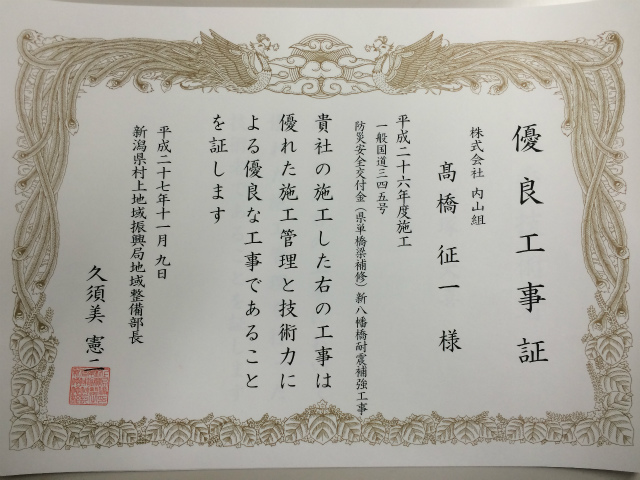 優良工事証
株式会社 内山組
髙橋 征一 様
平成二十六年度施工
一般国道三四五号
防災安全交付金（県単橋梁補修）新八幡橋耐震補強工事
貴社の施工した右の工事は
優れた施工管理と技術力に
よる優良な工事であること
を証します
平成二十七年十一月九日
新潟県村上地域振興局地域整備部長
久須美 憲二